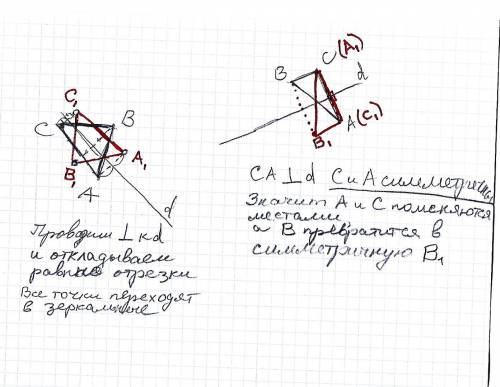 C₁
C
B
B₁
A₁
A
d
Проводим ⊥ к d
и откладываем
равные отрезки
Все точки переходят
в зеркальные
C(A₁)
B
d
A(C₁)
B₁
CA⊥d С и А симметричны
Значит А и С поменяются
местами
а В превратится в
симметричную B₁